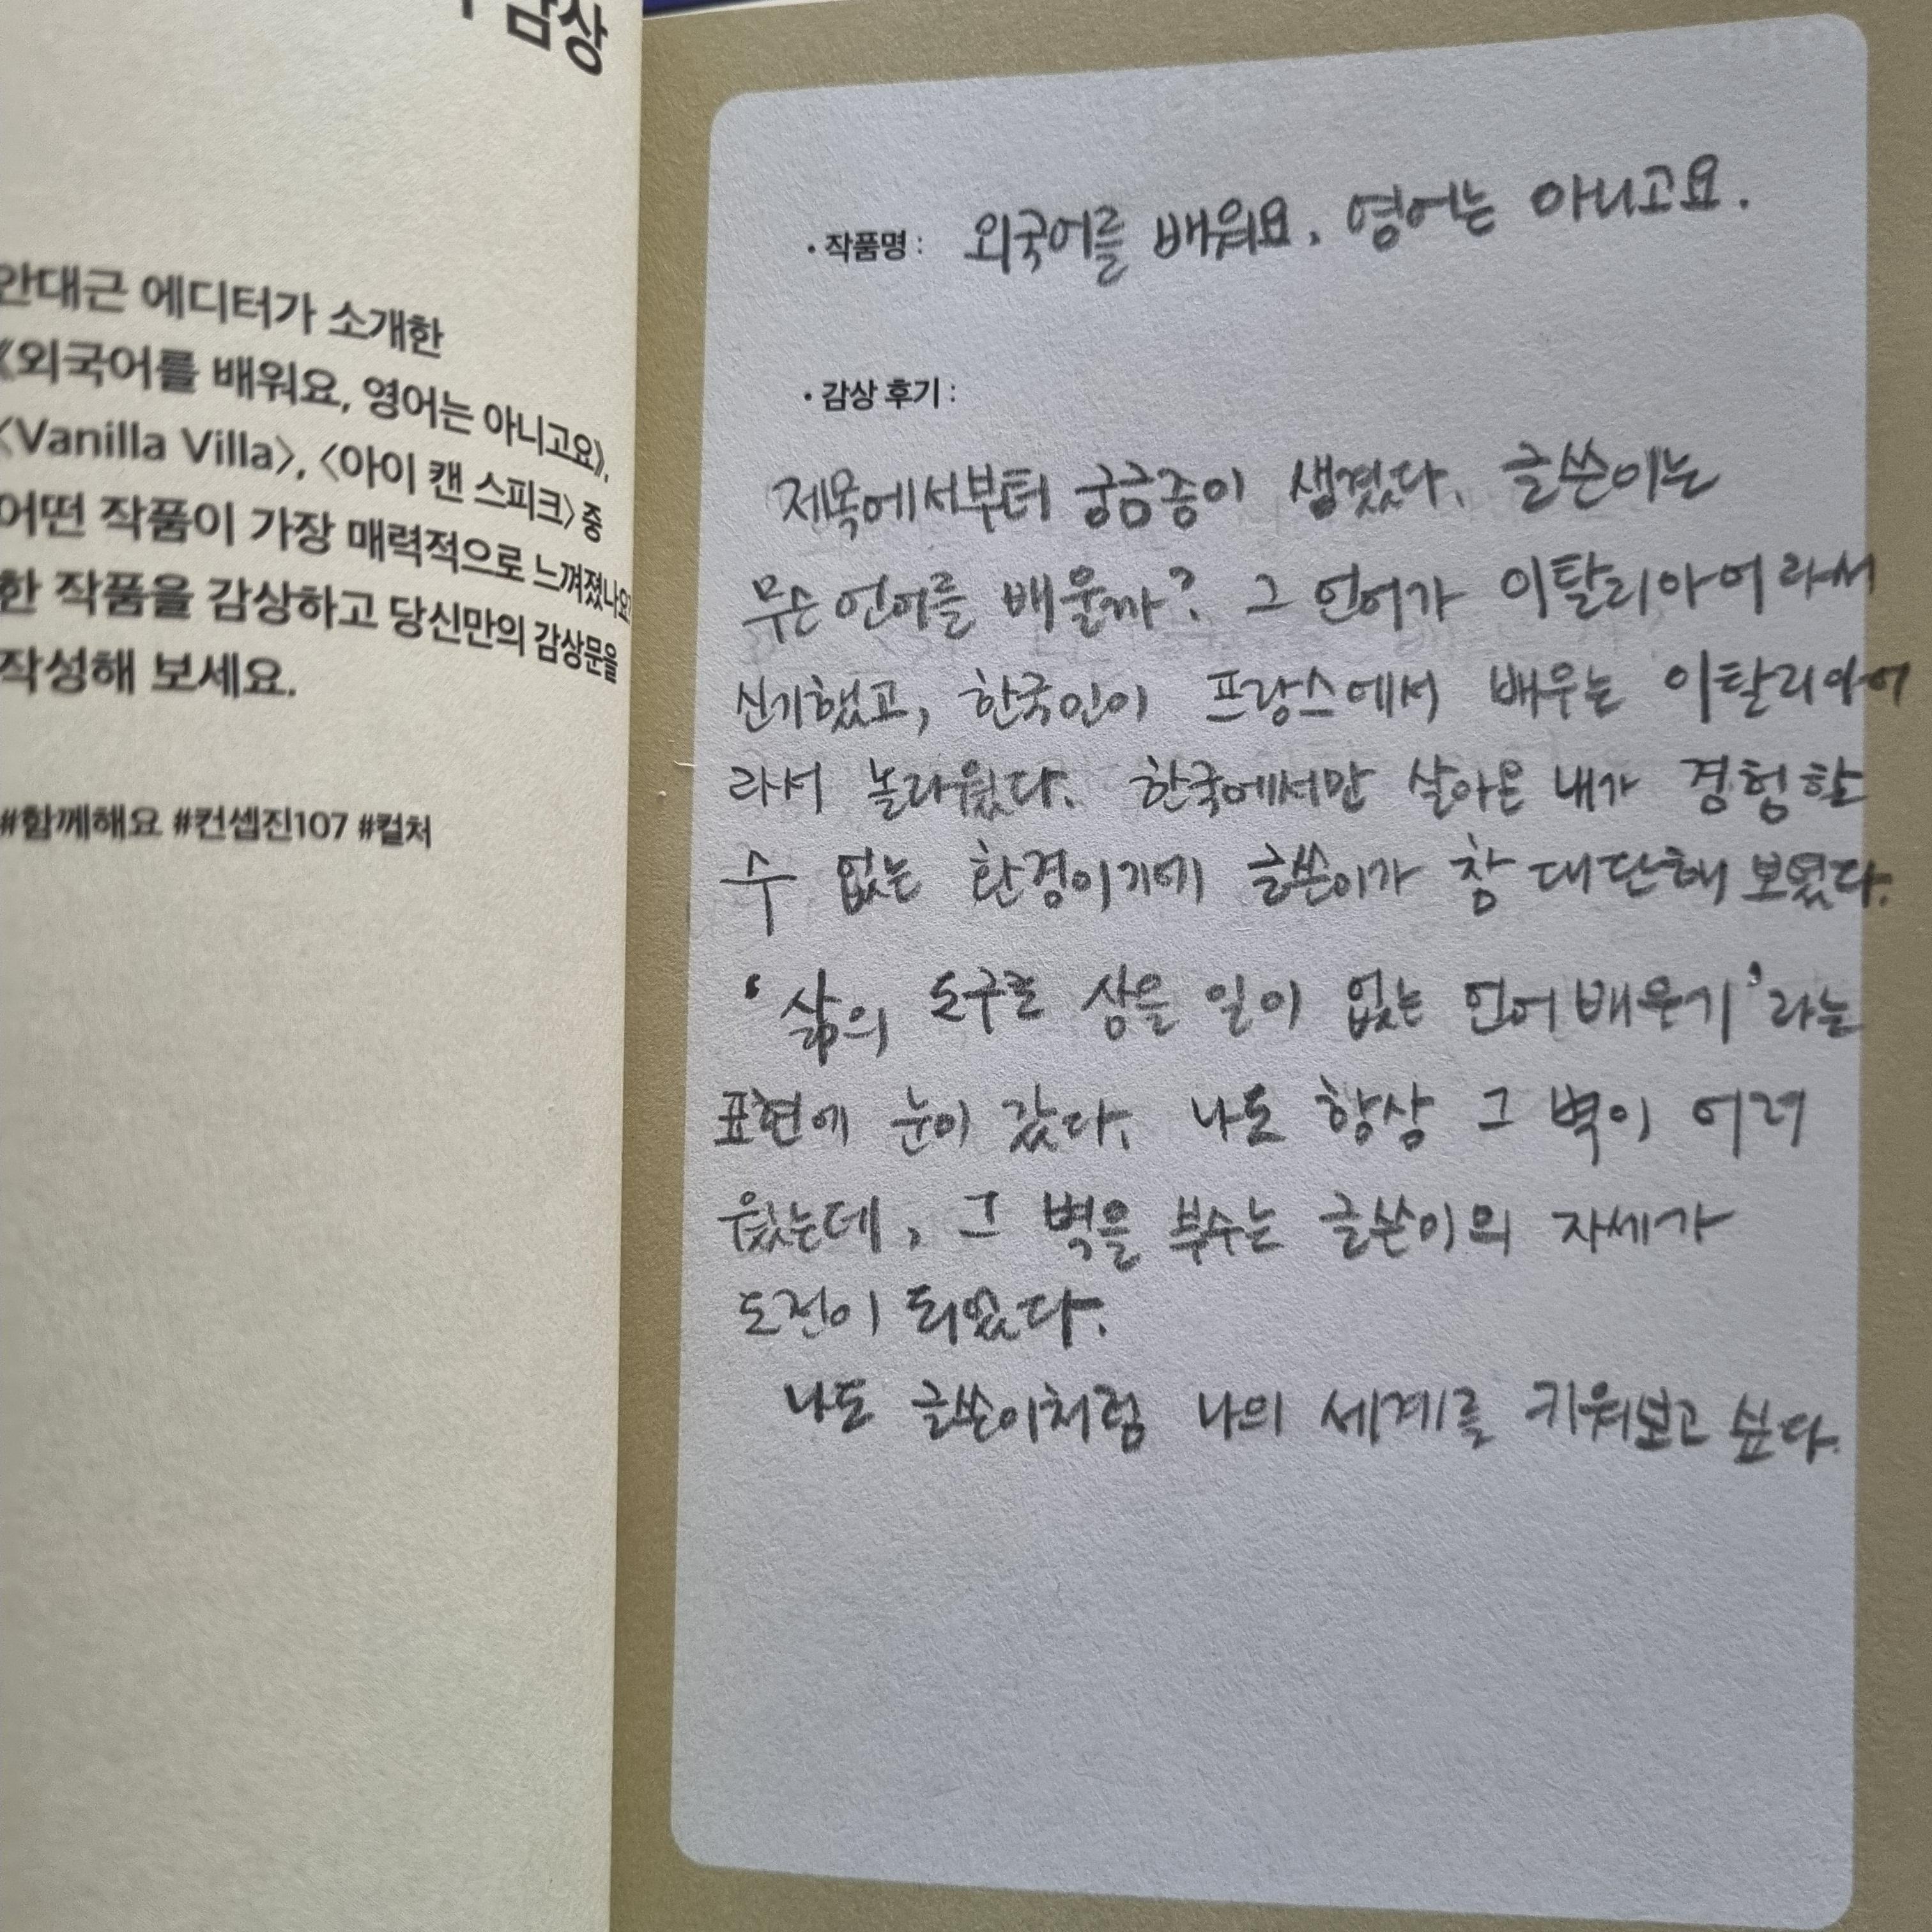 감상
안대근 에디터가 소개한
《외국어를 배워요, 영어는 아니고요》,
〈Vanilla Villa〉, 〈아이 캔 스피크〉 중
어떤 작품이 가장 매력적으로 느껴졌나요?
한 작품을 감상하고 당신만의 감상문을
작성해 보세요.
#함께해요 #컨셉진107 #컬처
• 작품명 : 외국어를 배워요, 영어는 아니고요.
• 감상 후기 :
제목에서부터 궁금증이 생겼다. 글쓴이는
무슨 언어를 배울까? 그 언어가 이탈리아어라서
신기했고, 한국인이 프랑스에서 배우는 이탈리아어
라서 놀라웠다. 한국에서만 살아온 내가 경험할
수 없는 환경이기에 글쓴이가 참 대단해 보였다.
'삶의 도구로 삼을 일이 없는 언어 배우기'라는
표현에 눈이 갔다. 나도 항상 그 벽이 어려
웠는데, 그 벽을 부수는 글쓴이의 자세가
도전이 되었다.
나도 글쓴이처럼 나의 세계를 키워보고 싶다.